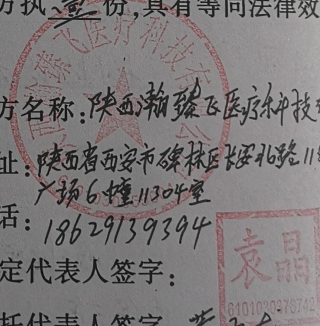 方执壹份,具有等同法律效
方名称:陕西瀚臻飞医疗科技
址:陕西省西安市碑林区长安北路11
广场6幢11304室
话:18629139394
定代表人签字:
袁晶
托代表人签字: